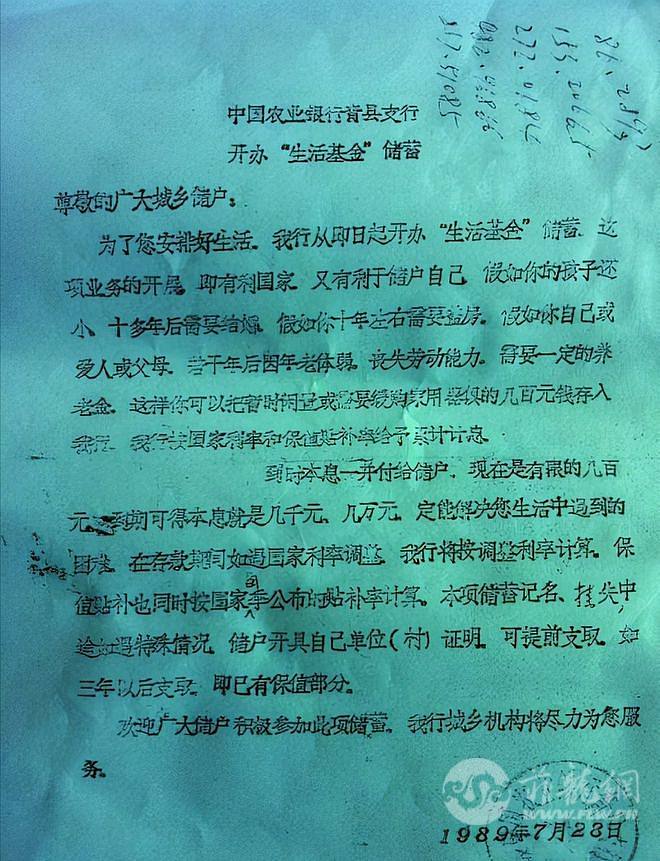 中国农业银行青县支行
开办“生活基金”储蓄
尊敬的广大城乡储户：
为了您安排好生活，我行从即日起开办“生活基金”储蓄，这
项业务的开展，即有利国家，又有利于储户自己，假如你的孩子还
小，十多年后需要结婚，假如你十年左右需要盖房，假如你自己或
爱人或父母，若干年后因年老体弱，丧失劳动能力，需要一定的养
老金，这样你可以把暂时闲置或需要缓购家用器俱的几百元钱存入
我行，我行按国家利率和保值贴补率给予累计计息
到时本息一并付给储户，现在是有限的几百
元，到期可得本息就是几千元、几万元，定能解决您生活中遇到的
困难。在存款期间如遇国家利率调整，我行将按调整利率计算。保
值贴补也同时按国家每季公布的贴补率计算。本项储蓄记名、挂失，中
途如遇特殊情况，储户开具自己单位（村）证明，可提前支取，如
三年以后支取，即已有保值部分。
欢迎广大储户积极参加此项储蓄，我行城乡机构将尽力为您服
务。
1989年7月23日
WWW.FLW.PH